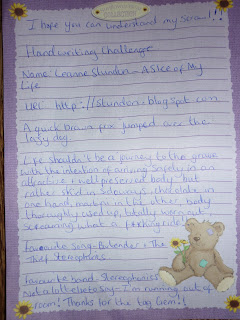 I hope you can understand my scrawl!!!
Handwriting Challenge
Name: Leanne Slundon - A Slice of My
Life
URL: http://slundon.blogspot.com
A quick brown fox jumped over the
lazy dog
Life shouldn't be a journey to the grave
with the intention of arriving safely in an
attractive & well preserved body but
rather skid in sideways, chocolate in
one hand, martini in the other, body
thoroughly used up, totally worn out &
screaming what a ride
Favourite song - Bartender & The
Thief Stereophonics
Favourite band - Stereophonics
Not a lot else to say - I'm running out of
room! Thanks for the tag Gem!